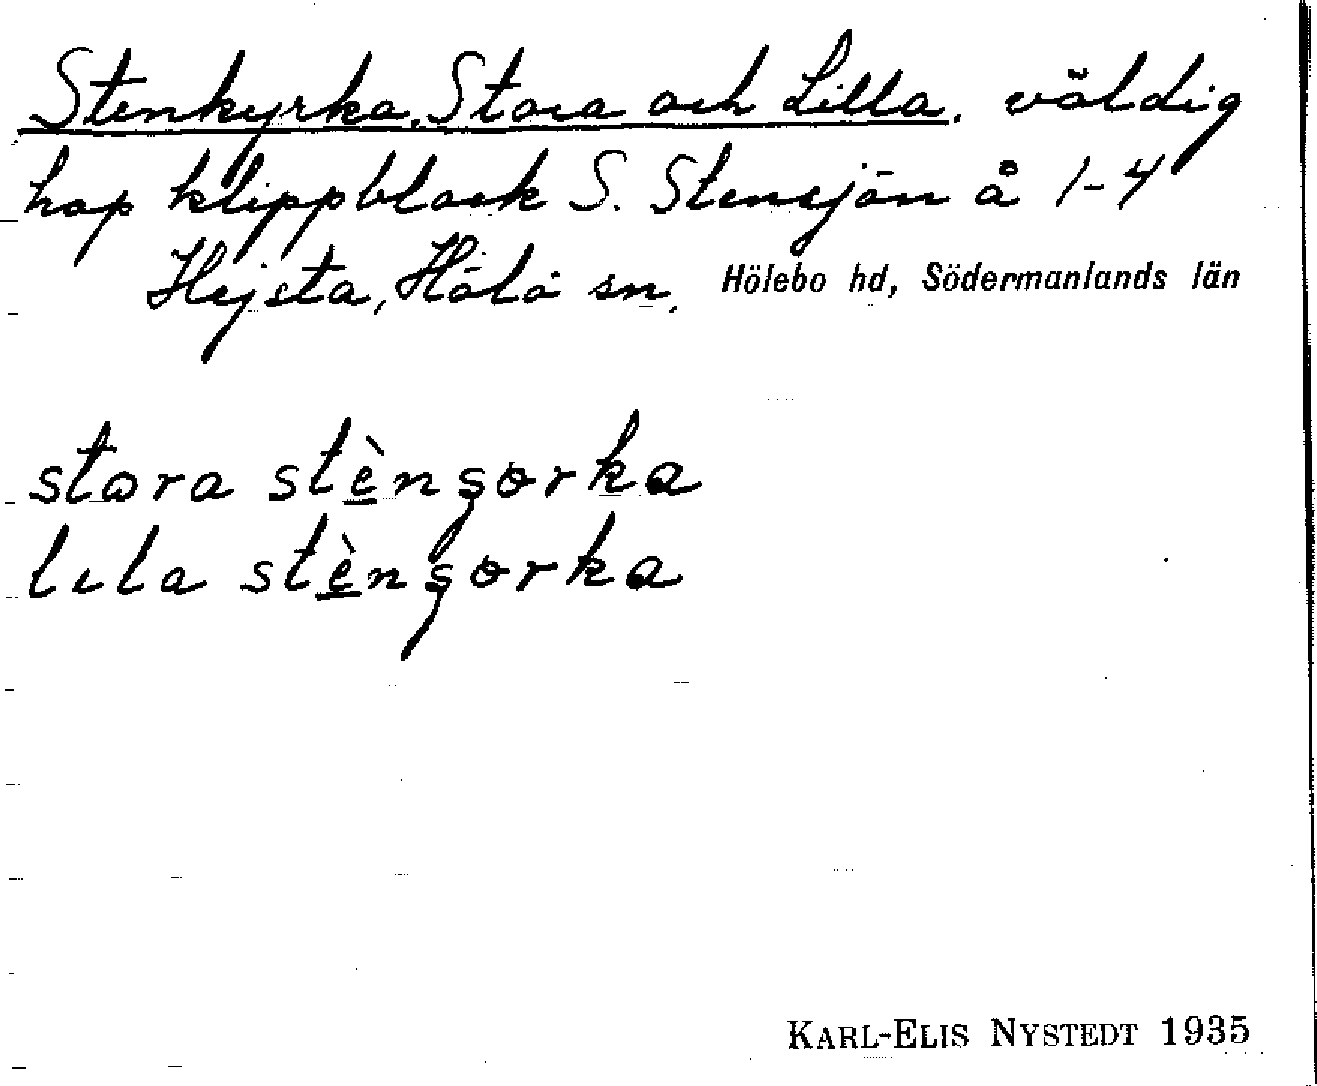 Stenkyrka, Stora och Lilla. väldig
hop klippblock S. Stensjön å 1-4
Hejsta, Hölö sn, Hölebo hd, Södermanlands län
stora stèn̨ɵrka
lɩla stèn̨ɵrka
KARL-ELIS NYSTEDT 1935